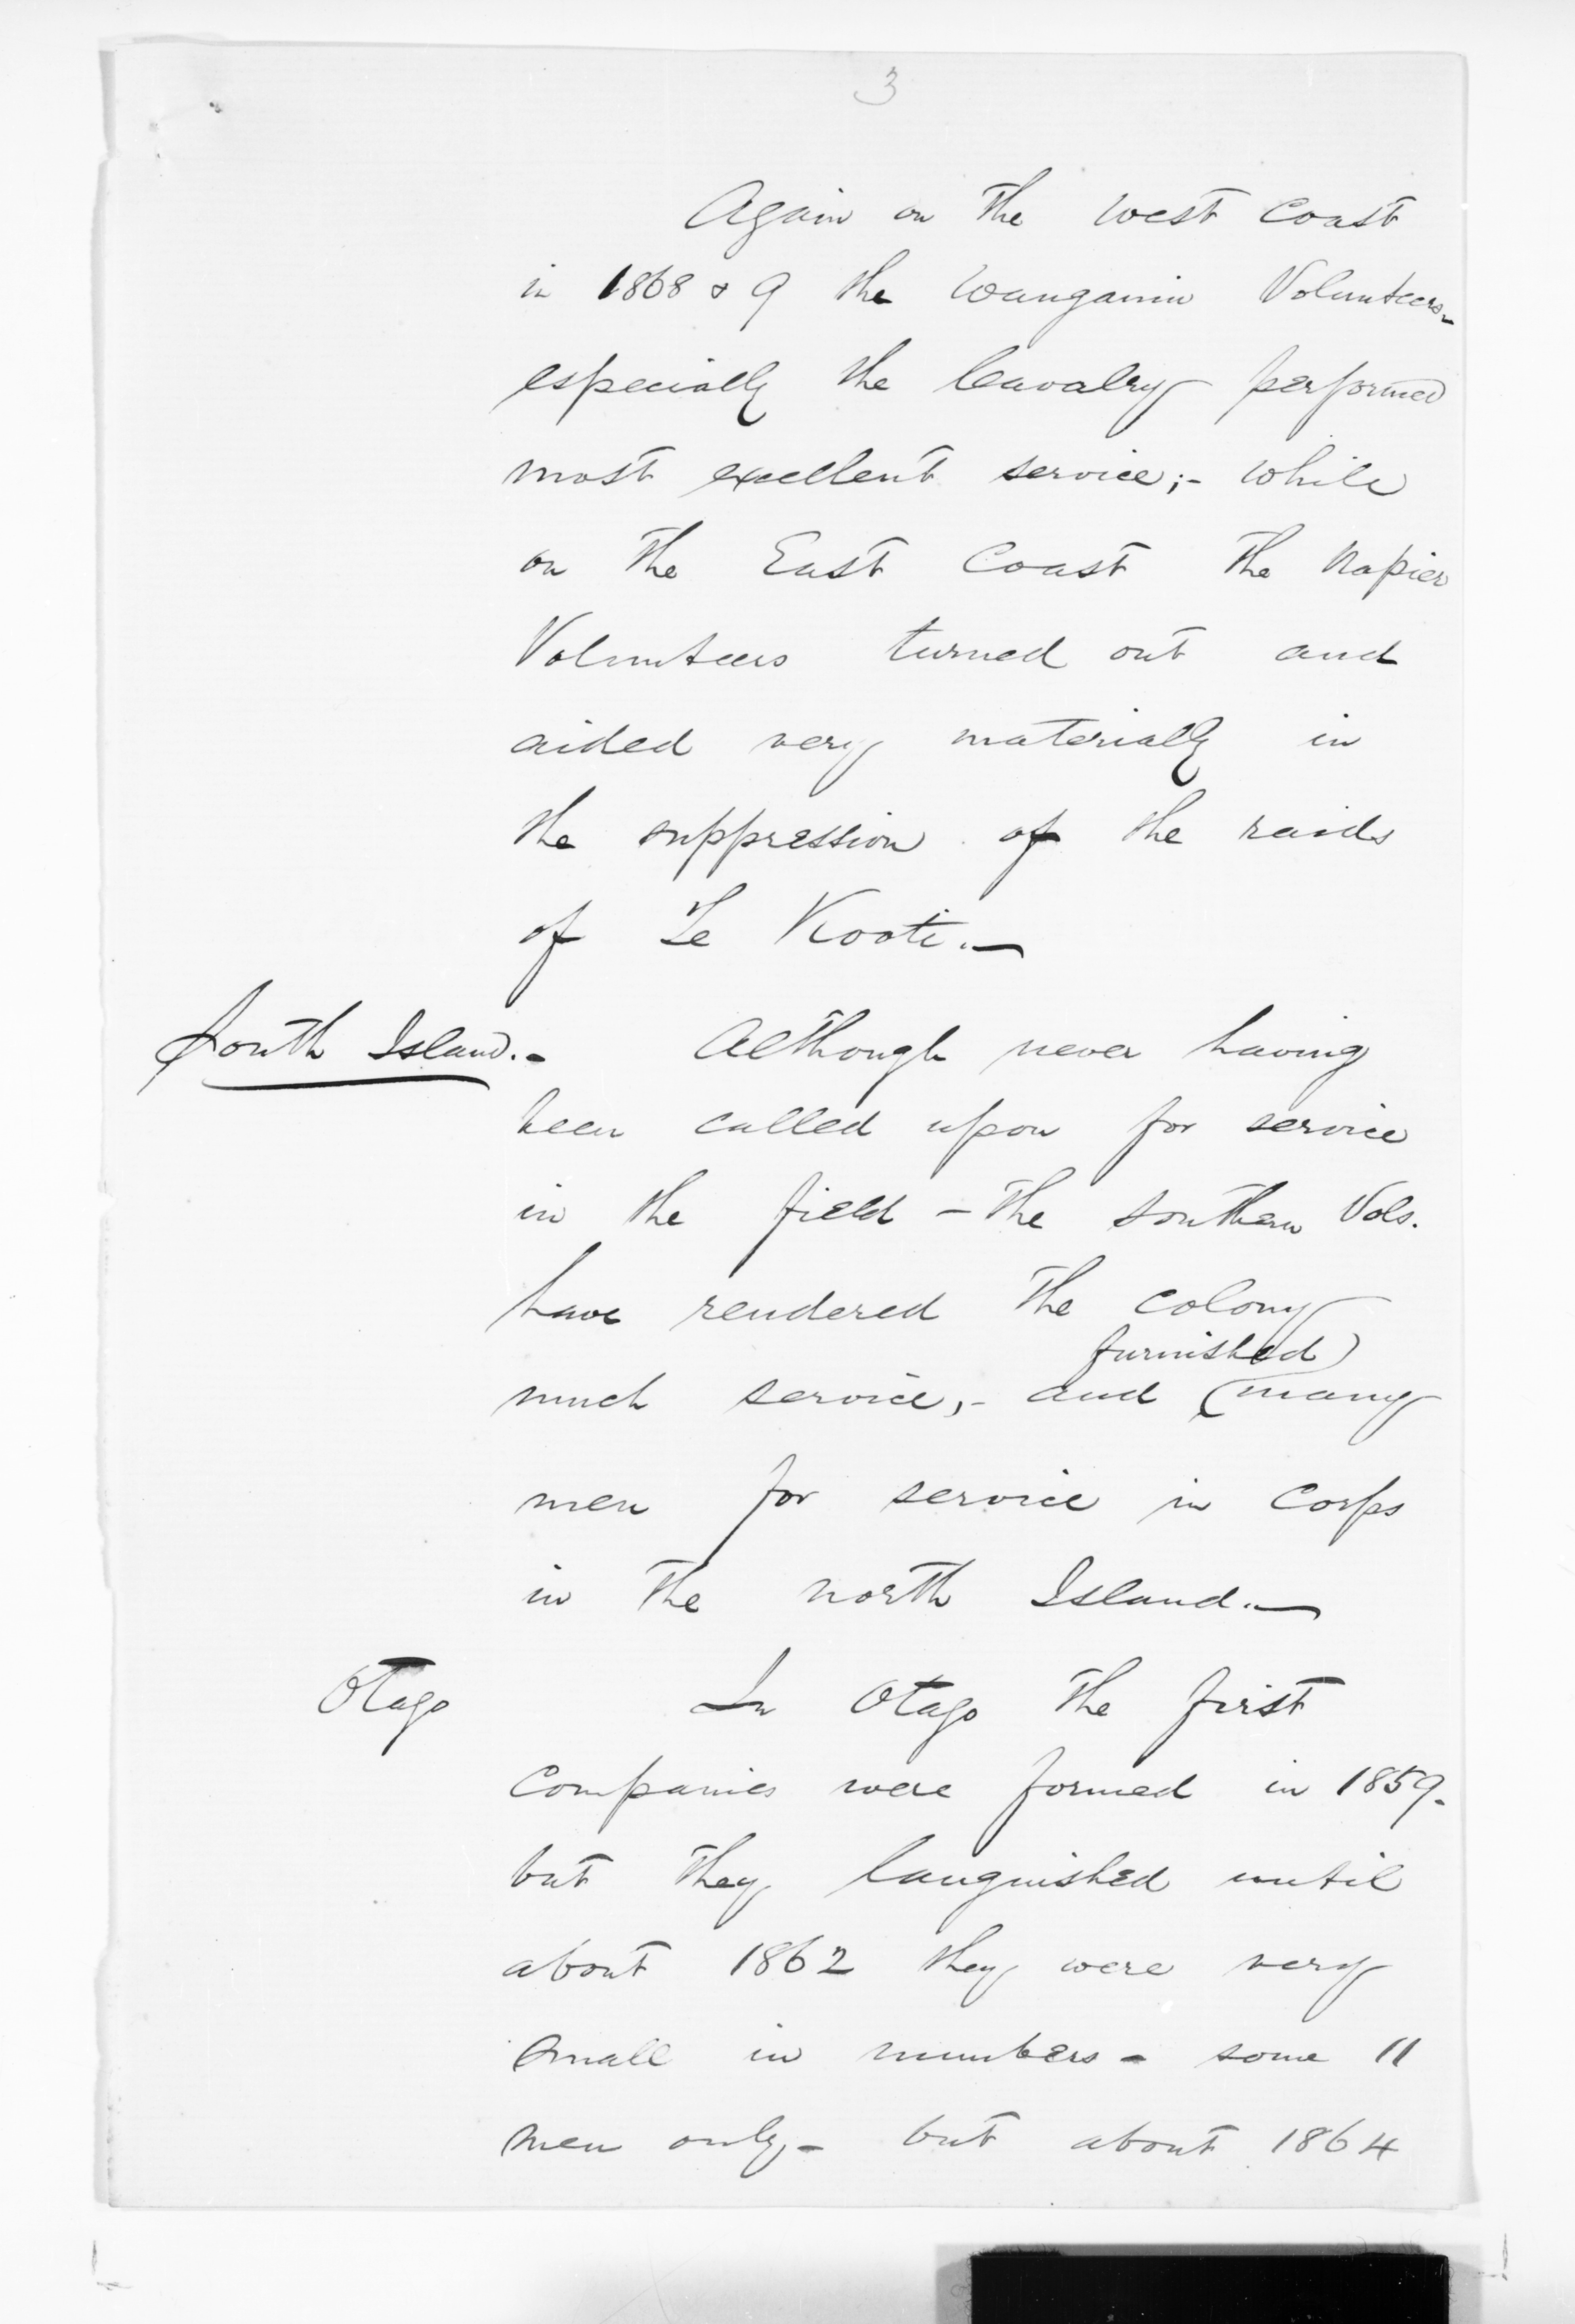 3
Again on the West Coast
in 1868 & 9 the Wanganui Volunteers -
especially the Cavalry performed
most excellent service; - while
on the East Coast the Napier
Volunteers turned out and
aided very materially in
the suppression of the raids
of Te Kooti. —
South Island. -
Although never having
been called upon for service
in the field - the Southern Vols.
have rendered the colony
furnished)
much service, - and (many
men for service in Corps
in the North Island. —
Otago
In Otago the first
Companies were formed in 1859.
but they languished until
about 1862 they were very
small in numbers - some 11
men only, - but about 1864